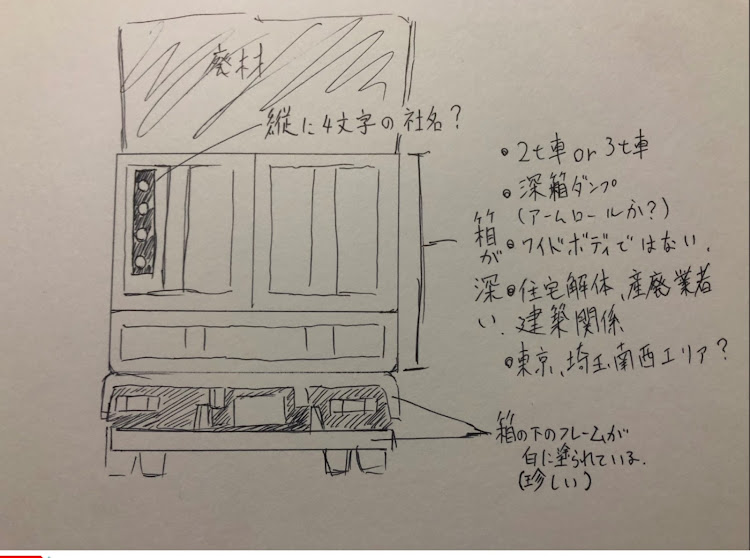 廃材
縦に4文字の社名?
• 2t車 or 3t車
• 深箱ダンプ
(アームロールか?)
• ワイドボディではない.
• 住宅解体、産廃業者
建築関係
• 東京、埼玉南西エリア?
箱が深い.
箱の下のフレームが
白に塗られている.
(珍しい)